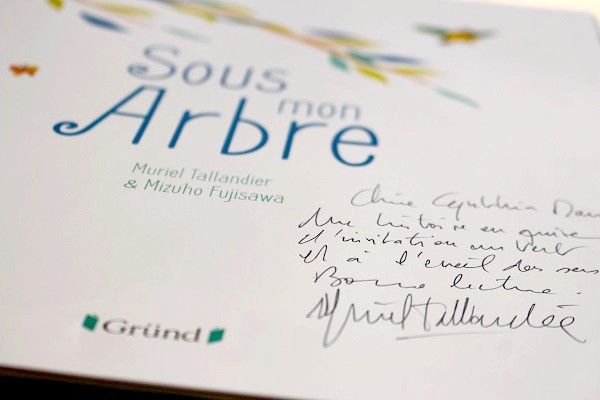 Sous
mon
Arbre
Muriel Tallandier
& Mizuho Fujisawa
Chère Cynthia
Une histoire en guise
d'invitation au vert
et à l'éveil des sens
Bonne lecture.
Muriel Tallandier
Gründ